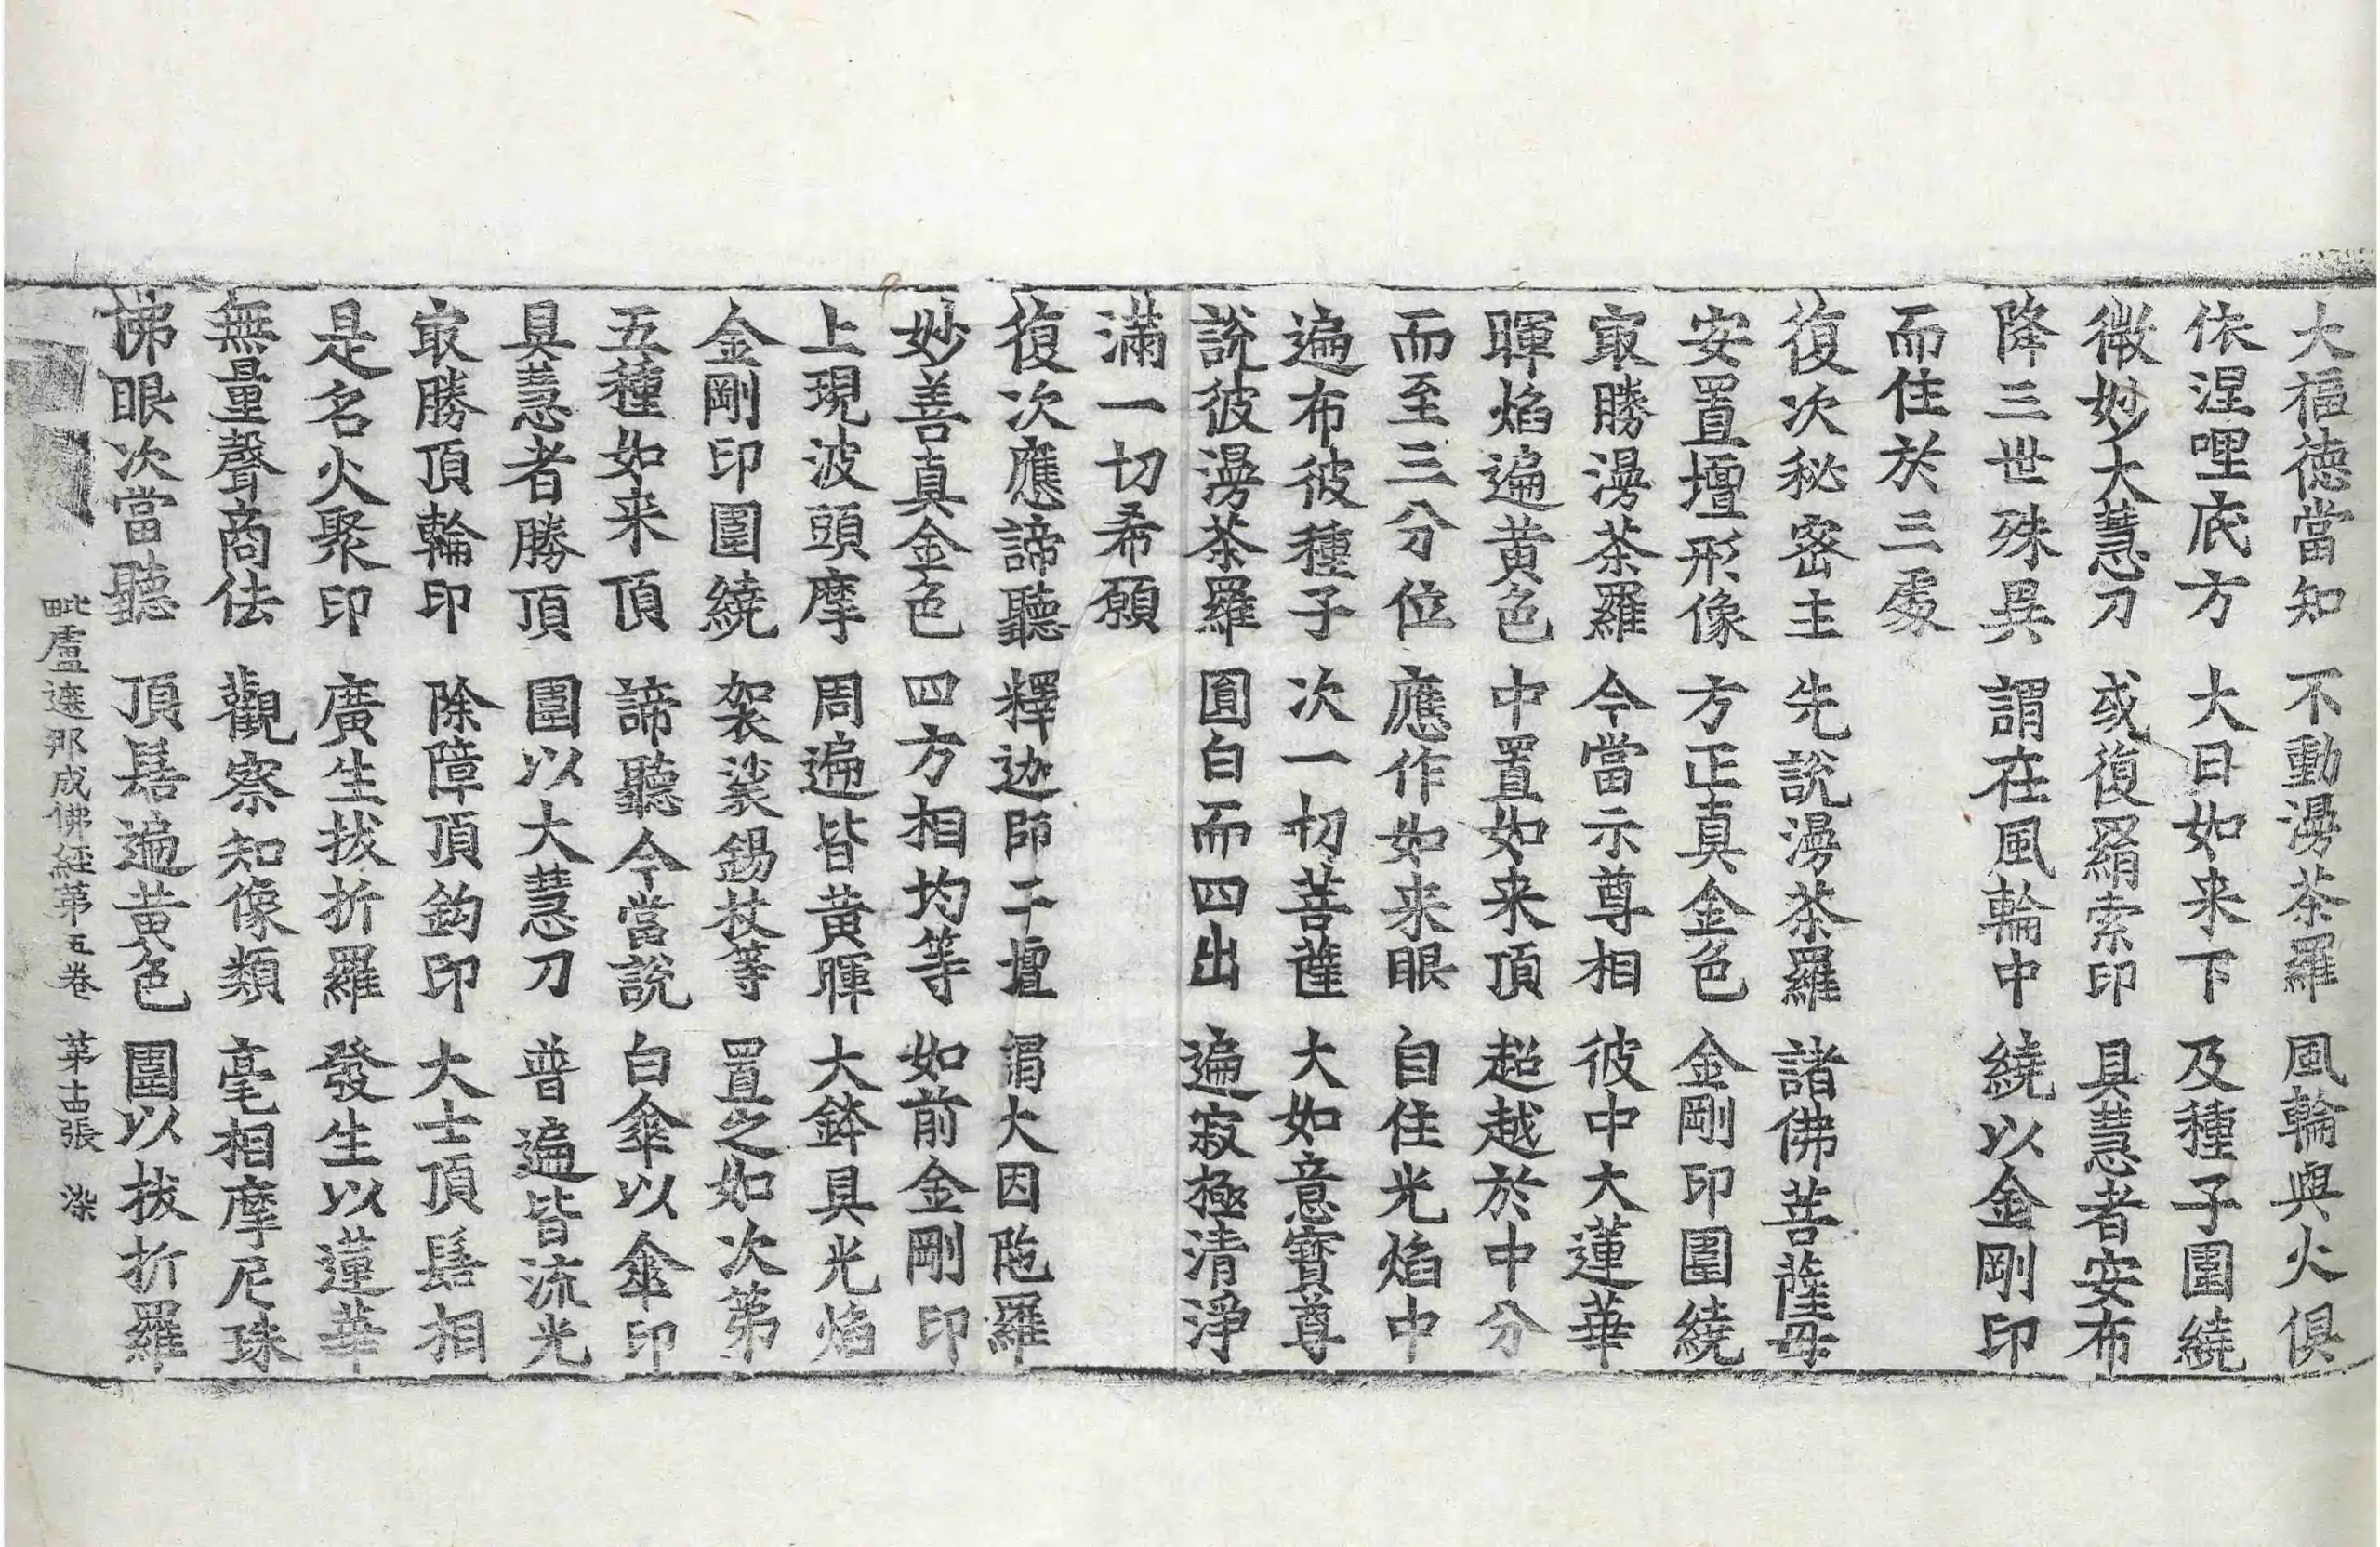 大福德當知　不動漫茶羅　風輪與火俱
依涅哩底方　大日如来下　及種子圍繞
微妙大慧刀　或復羂索印　具慧者安布
降三世殊異　謂在風輪中　繞以金剛印
而住於三處
復次秘密主　先說漫茶羅　諸佛菩薩母
安置壇形像　方正真金色　金剛印圍繞
㝡勝漫茶羅　今當示尊相　彼中大蓮華
暉焰遍黃色　中置如来頂　超越於中分
而至三分位　應作如来眼　自住光焰中
遍布彼種子　次一切菩薩　大如意寶尊
說彼漫茶羅　圓白而四出　遍寂極清淨
滿一切希願
復次應諦聽　釋迦師子壇　謂大因陁羅
妙善真金色　四方相均等　如前金剛印
上現波頭摩　周遍皆黃暉　大鉢具光焰
金剛印圍繞　袈裟錫杖等　置之如次第
五種如来頂　諦聽今當說　白傘以傘印
具慧者勝頂　圍以大慧刀　普遍皆流光
㝡勝頂輪印　除障頂鉤印　大士頂髻相
是名火聚印　廣生拔折羅　發生以蓮華
無量聲商佉　觀察知像類　毫相摩尼珠
佛眼次當聽　頂髻遍黃色　圍以拔折羅
毗盧遮那成佛經第五卷　第十四張　染